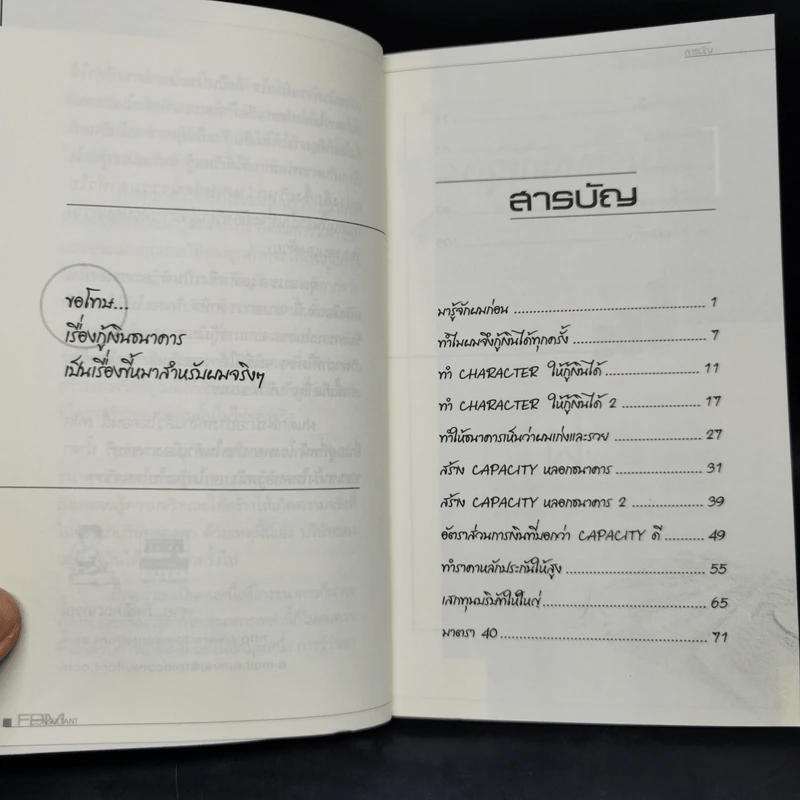 ขอโทษ...
เรื่องกู้เงินธนาคาร
เป็นเรื่องขี้หมาสำหรับผมจริงๆ
FBM
CONSULTANT
สารบัญ
สารบัญ
มารู้จักผมก่อน 1
ทำไมผมจึงกู้เงินได้ทุกครั้ง 7
ทำ CHARACTER ให้กู้เงินได้ 11
ทำ CHARACTER ให้กู้เงินได้ 2 17
ทำให้ธนาคารเห็นว่าผมเก่งและรวย 27
สร้าง CAPACITY หลอกธนาคาร 31
สร้าง CAPACITY หลอกธนาคาร 2 39
อัตราส่วนการเงินที่บอกว่า CAPACITY ดี 49
ทำราคาหลักประกันให้สูง 55
เสกทุนบริษัทให้ใหญ่ 65
มาตรา 40 71